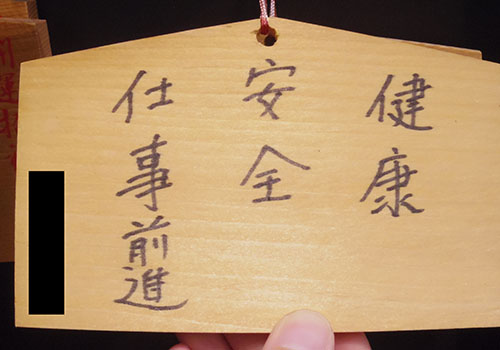 健康
安全
仕事前進